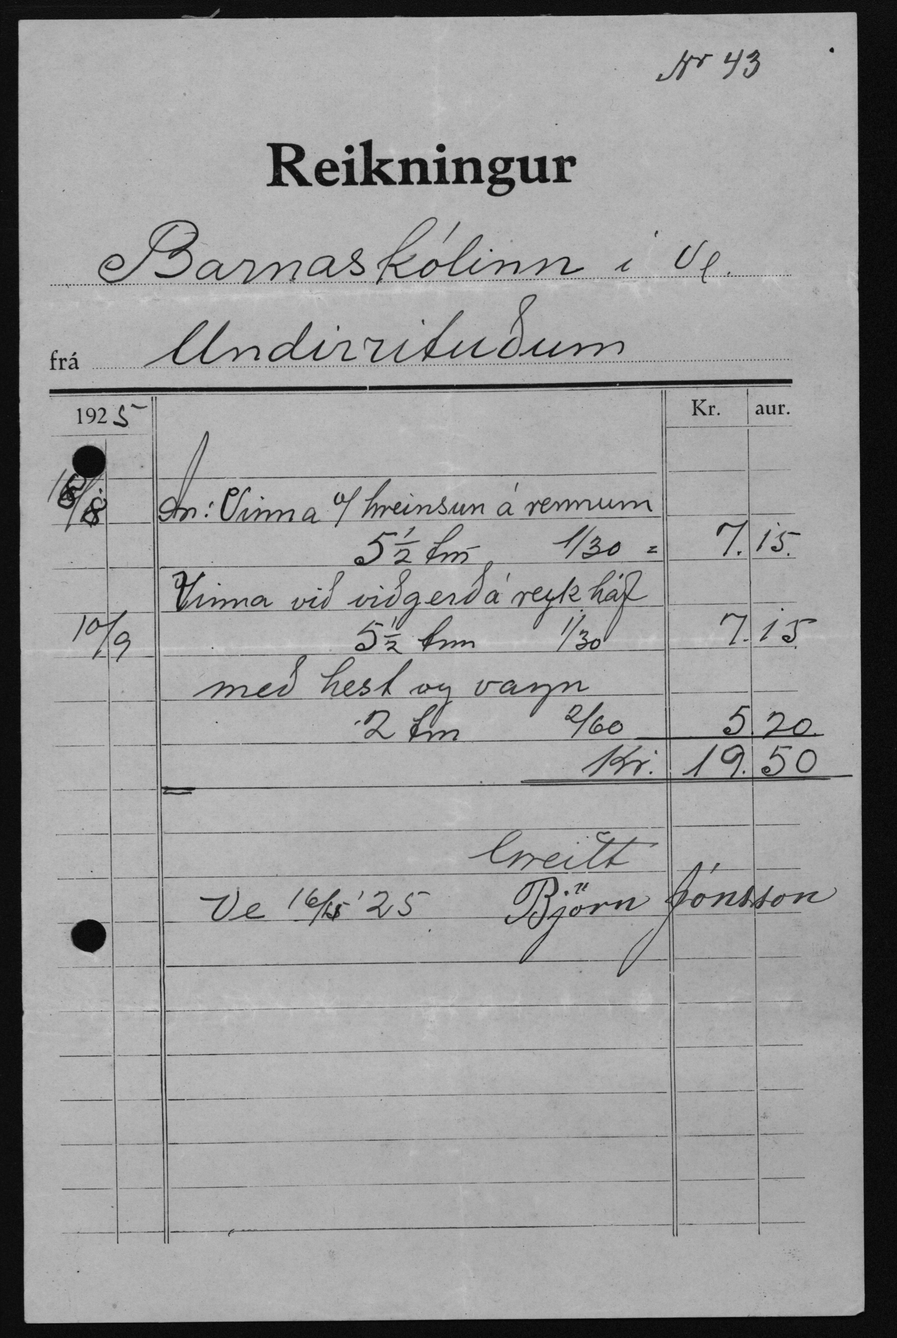 Nr 43
Reikningur
Barnaskólinn í Ve.
frá Undirrituðum
1925 Kr. aur.
An: Vinna v/ hreinsun á rennum
5 1/2 tm 1/30 = 7. 15.
Vinna við viðgerð á reykháf
10/9 5 1/2 tm 1/30 7. 15
með hest og vagn
2 tm 2/60 5. 20.
Kr. 19. 50
Greitt
Ve 25 Björn Jónsson